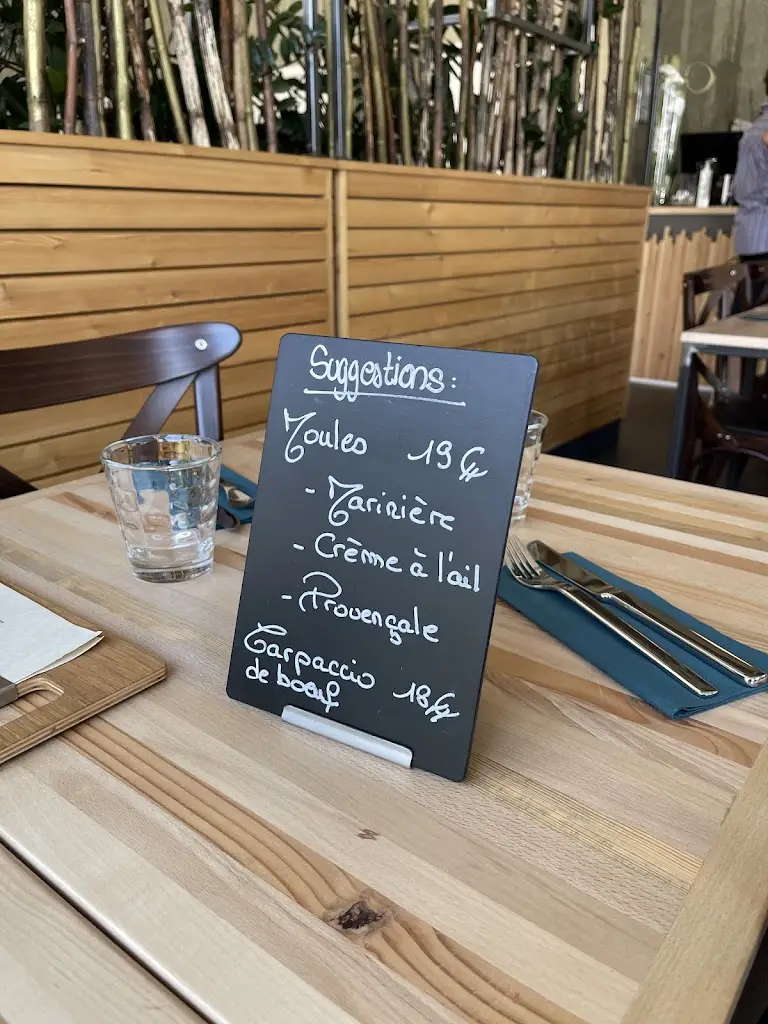 Suggestions:
Moules 19€
- Marinière
- Crème à l'ail
- Provençale
Carpaccio
de boeuf 18€